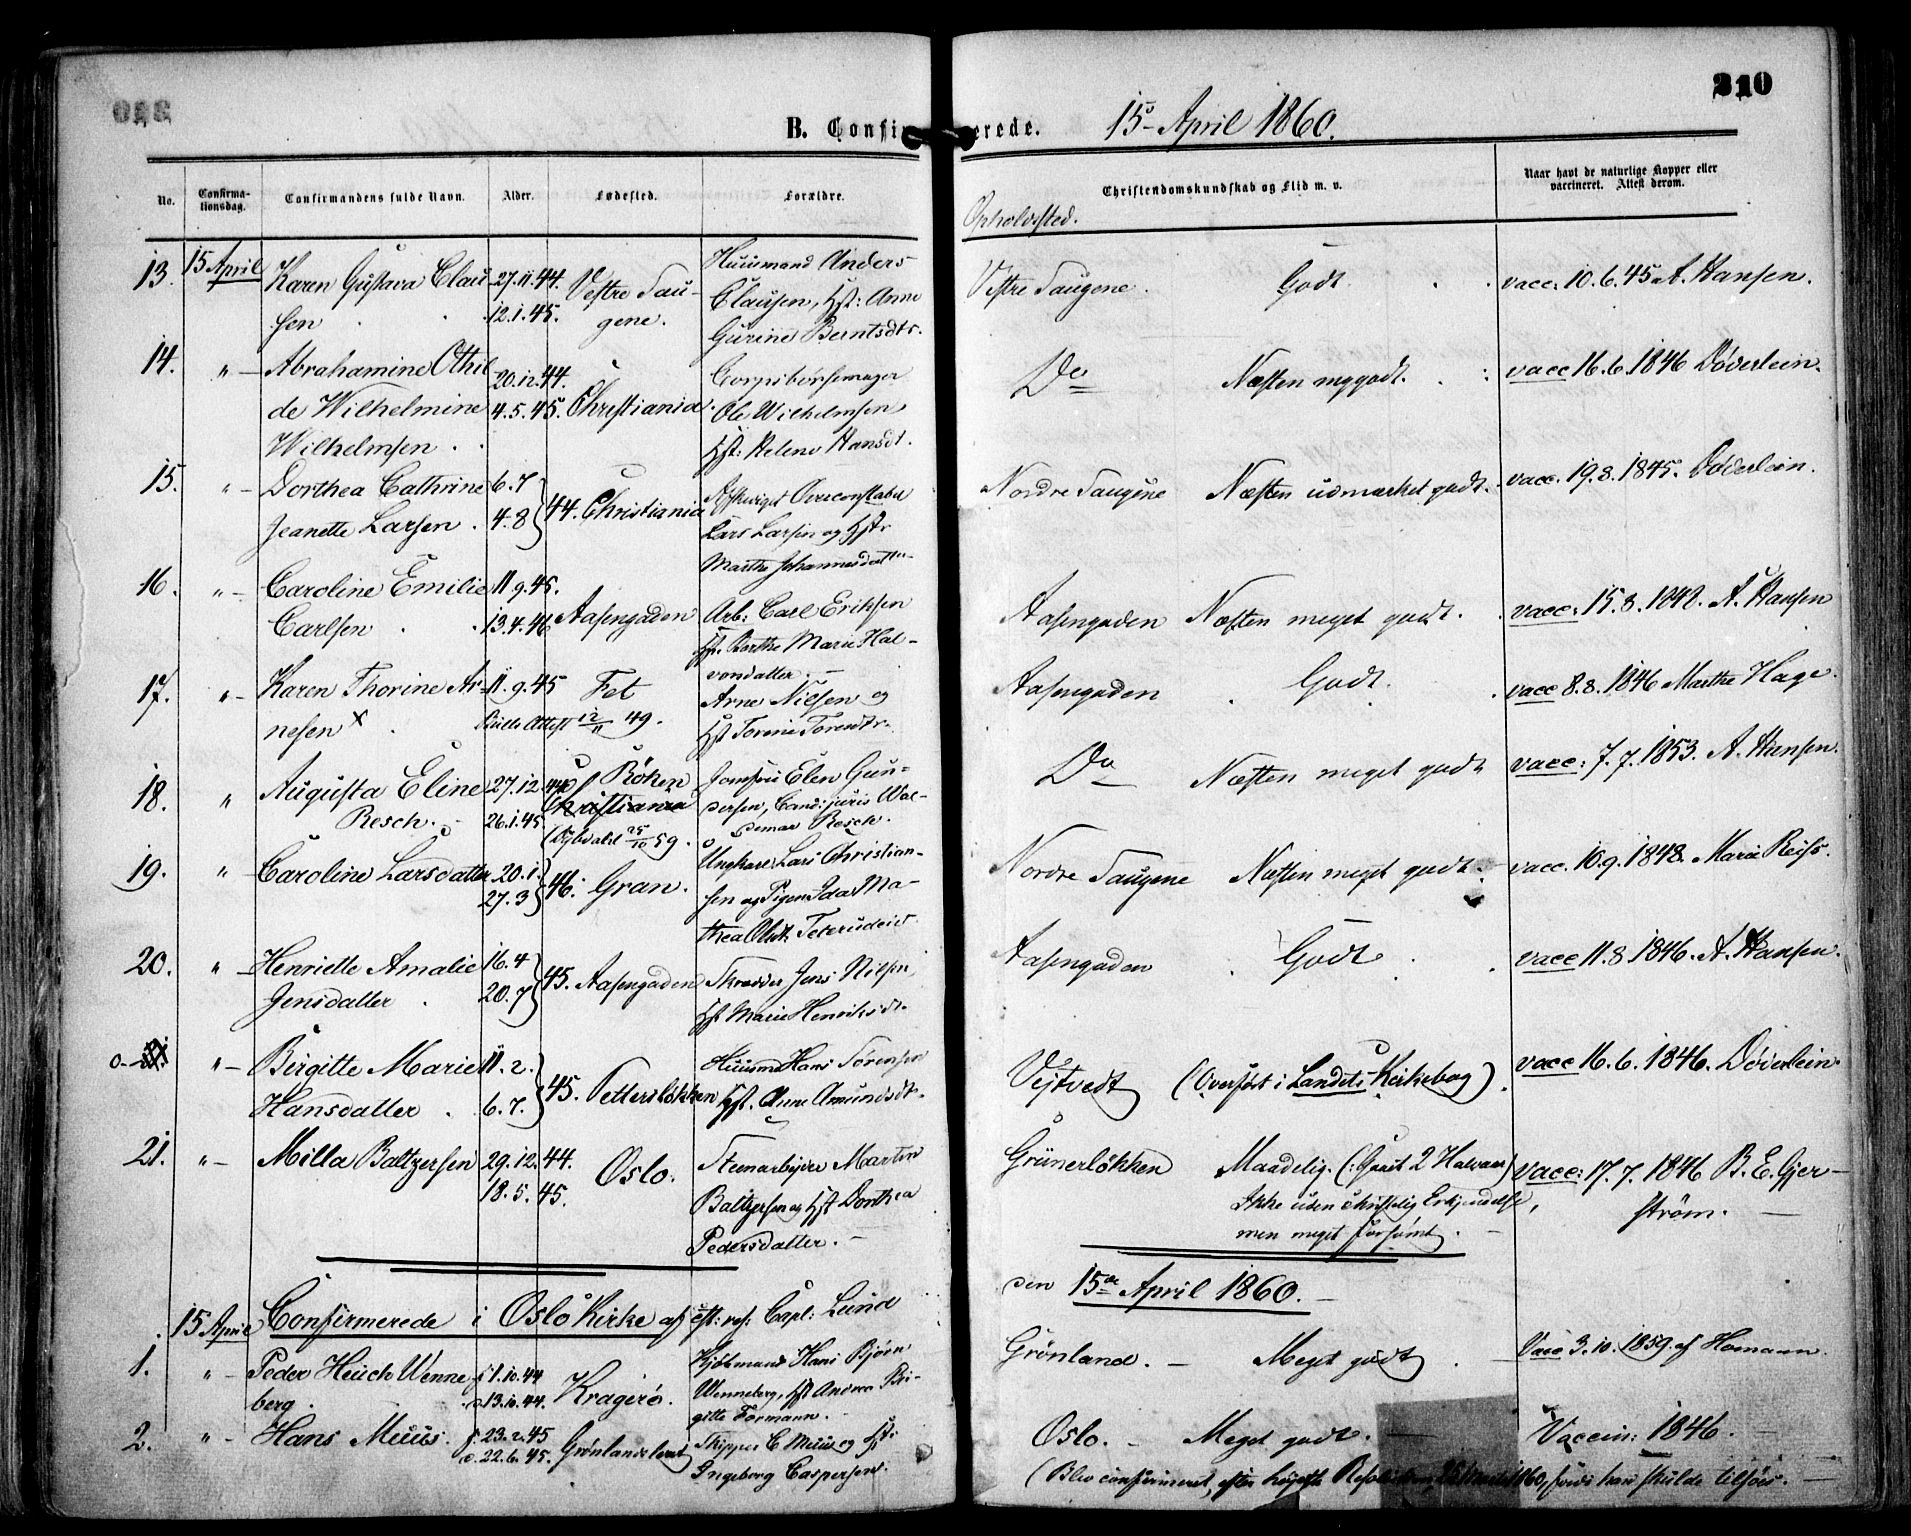 310
B. Confirmerede. 15 April 1860.
No. Confirmationsdag. Confirmandens fulde Navn. Alder. Fødested. Forældre. Christendomskundskab og Flid m. v. Naar havt de naturlige Kopper eller vaccineret. Attest derom.
Opholdssted.
13. 15 April Karen Gustava Clau- 27.11.44. Vestre Sau- Huusmand Anders Vestre Saugene. Godt. vacc: 10.6.45 A. Hansen.
sen 12.1.45. gene. Clausen, Hst: Anne
Gurine Berntsdtr.
14. " Abrahamine Othil 20.12.44. Christiania. Ole Wilhelmsen Do Næsten mg godt. vacc 16.6.1846 Døderlein.
de Wilhelmine 4.5.45.
Wilhelmsen. Hst: Helene Hansdt.
15. " Dorthea Cathrine 6.7 44. Christiania Overconstabel Nordre Saugene Næsten udmærket godt. vacc. 19.8.1845. Døderlein.
Jeanette Larsen. 4.8 Lars Larsen og Hst:
Marthe Johannesdatter
16. " Caroline Emilie 11.9.45. Aasengaden Arb: Carl Eriksen Aasengaden Næsten meget godt. vacc: 15.8.1848. A. Hansen
Carlsen 13.4.46 Hst. Berthe Marie Hal-
vorsdatter.
17. " Karen Thorine Ar- 11.9.45 Fet Arne Nilsen og Aasengaden Godt. vacc 8.8.1846 Marthe Hage.
nesen x Attest 12/11 49. Hst Torine Toresdtr.
18. " Augusta Eline 27.12.44 Röken Jomfru Elen Gun- Do Næsten meget godt vacc: 7.7.1853. A. Hansen.
Resch. 26.1.45 Christiania dersen, Cand: juris Wal-
25/10 59. demar Resch.
19. " Caroline Larsdatter 20.1 46. Gran. Ungkarl Lars Christian- Nordre Saugene Næsten meget godt. vacc. 10.9.1848. Marie Reiss.
27.3 sen og Pigen Ida Ma-
thea Olsdt.
20. " Henriette Amalie 16.4 45. Aasengaden Skrædder Jens Nilsen Aasengaden Godt vacc 11.8.1846. A. Hansen.
Jensdatter 20.7 Hst Marie Henriksdt.
" Birgitte Marie 11.2. 45. Petterslökken Huusmd Hans Sörensen Vejtvedt (Overført i Landets Kirkebog). vacc 16.6.1846. Døderlein
Hansdatter. 6.7. Hst. Anne Amundsdt.
21. " Milla Baltzersen 29.12.44. Oslo. Steenarbejder Martin Grünerløkken Maadelig. (: Gaaet 2 Halvaar) vacc: 17.7.1846 B. E. Gjer-
18.5.45. Baltzersen og Hst Dorthea Ikke uden christelig Erkjendelse, strøm.
Pedersdatter. men meget forsømt.
15 April Confirmerede i Oslo Kirke af est: res: Capl: Lund den 15de April 1860.
1. " Peder Heuch Wenne f 1.10.44 Kragerø. Kjøbmand Hans Bjørn Grönland. Meget godt. Vacc 3.10.1859. af Homann.
berg. d. 13.10.44. Wenneberg, Hst Andrea Bri-
gitte Formann.
2. " Hans Muus. f. 23.2.45 Grønlandsleret Skipper C Muus og Hst: Oslo. Meget godt. Vaccin: 1846.
d. 22.6.45. Ingeborg Caspersen. (Blev confirmeret, efter høyeste Resolution 1860, fordi han skulde tilsøes.